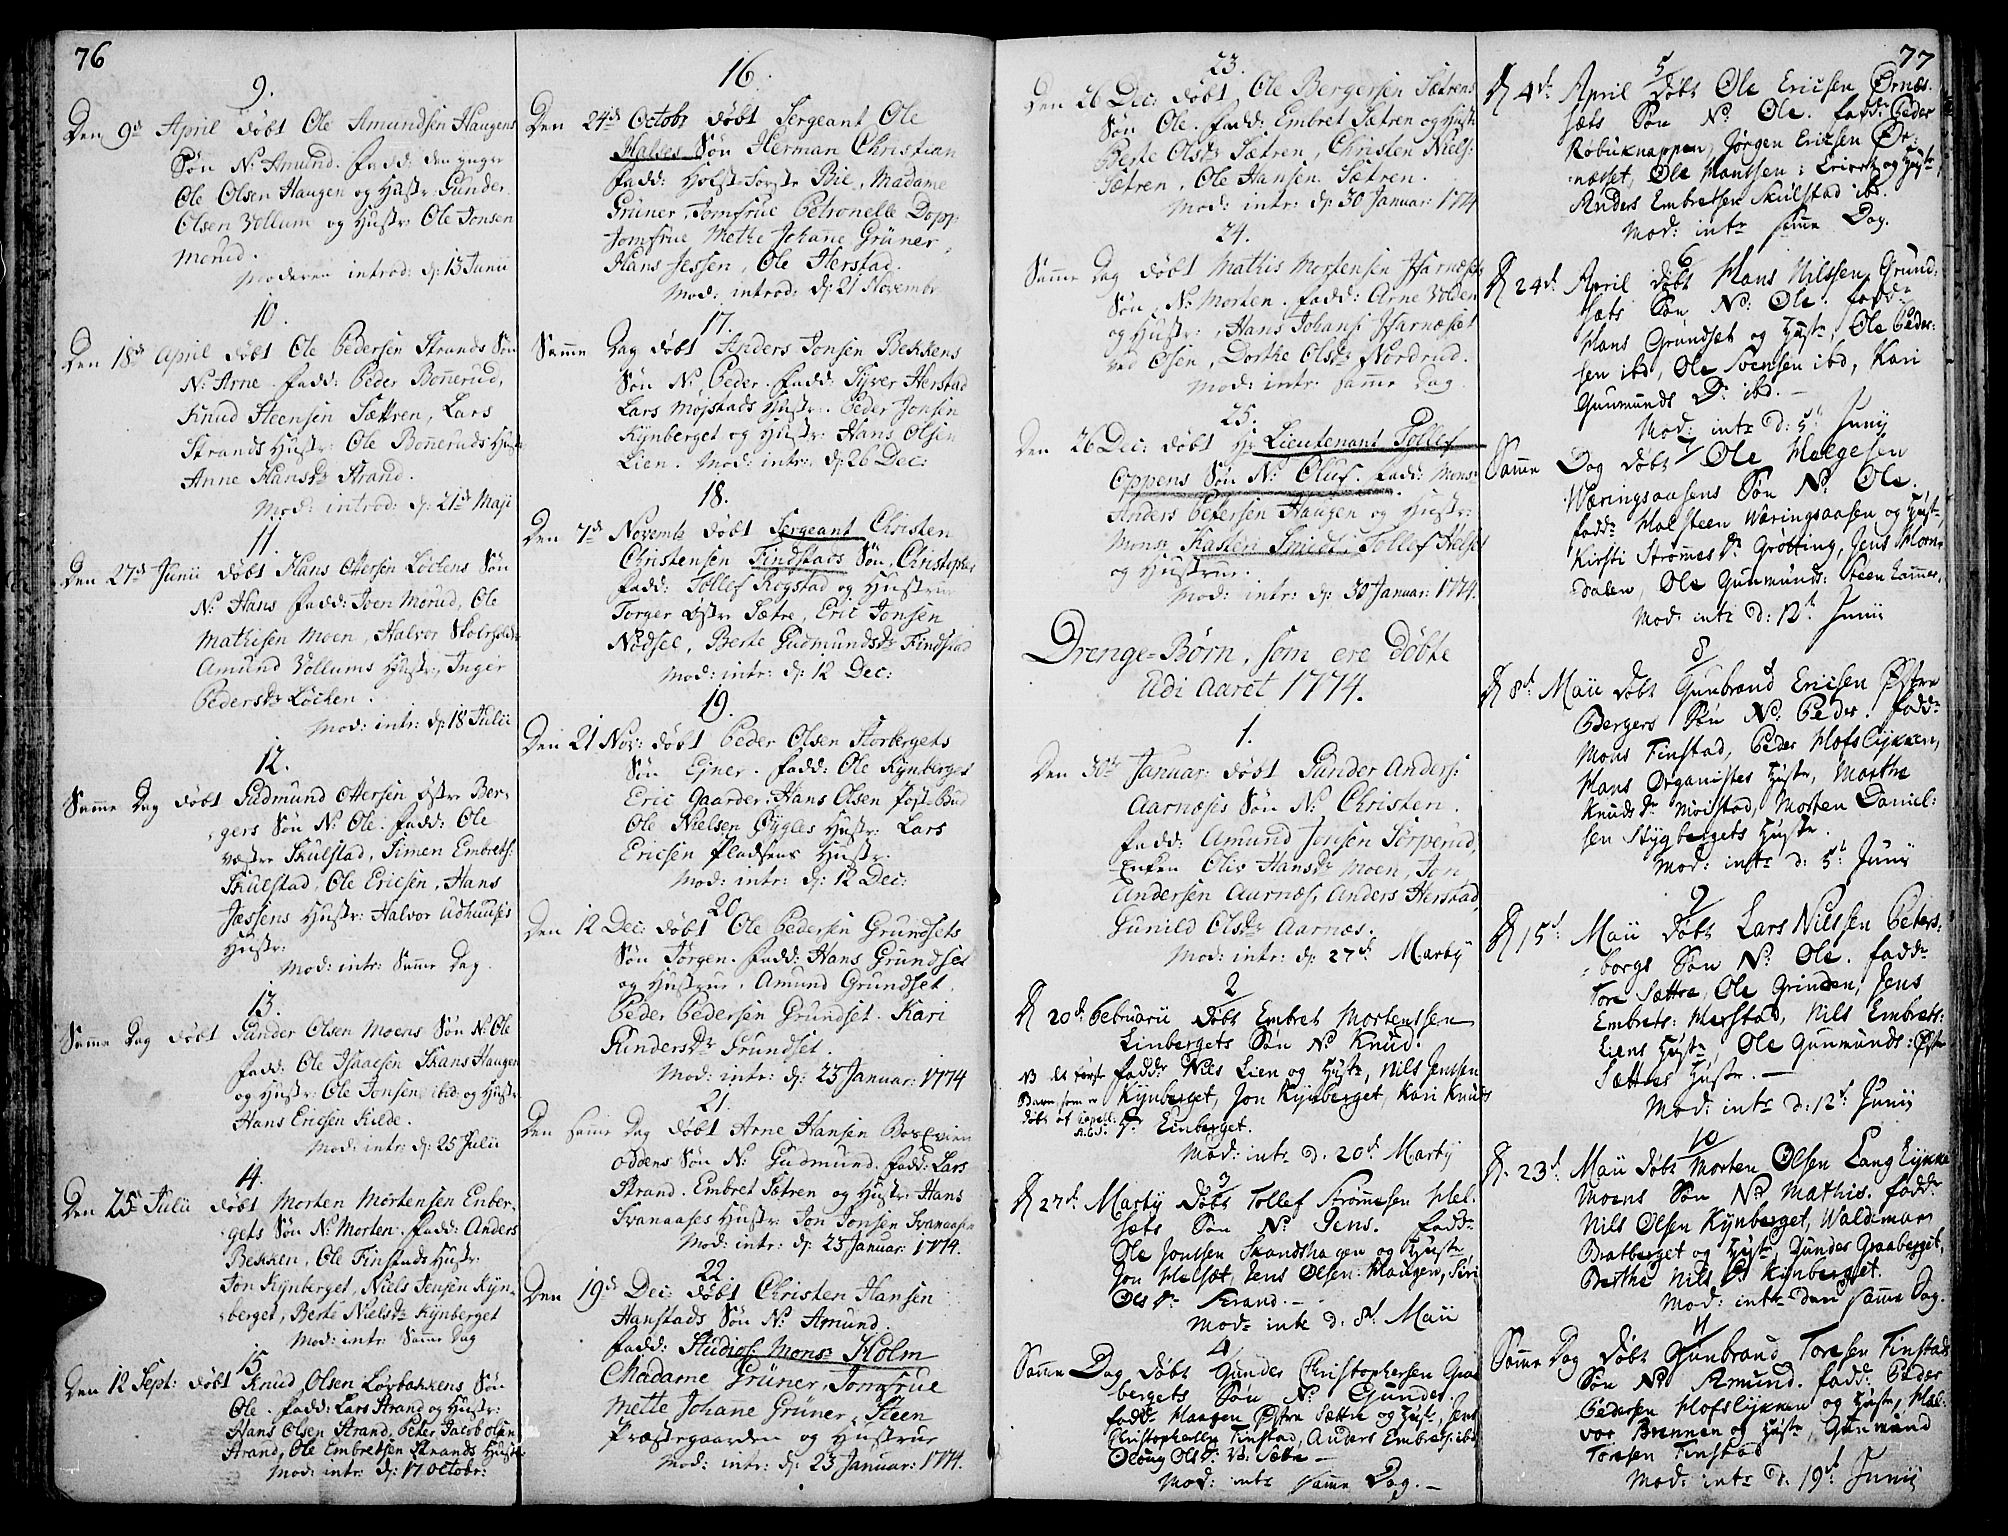 76
9.
Den 9de April døbt Ole Amundsen Haugens
Søn N: Amund. Fadd: den yngre
Ole Olsen Haugen og Hustr: Gunder
Olsen Vollum og Hustr: Ole Jonsen
Morud.
Moderen introd: d: 13 Junii
10.
Den 18de April døbt Ole Pedersen Strands Søn
N: Arne. Fadd: Peder Bonnerud,
Knud Steensen Sættren, Lars
Strands Hustr: Ole Bonneruds Hustr:
Anne Hansdr Strand.
Mod: introd: d: 21de Maji
11.
Den 27de Junii døbt Hans Ottersen Löckens Søn
N: Hans Fadd: Iver Morud, Ole
Mathisen Moen, Halvor
Amund Vollums Hustr, Inger
Pedersdr Löcken.
Mod: intr: d: 18 Julii
12.
Samme Dag døbt Gudmund Ottersen østre Ber-
gers Søn N: Ole. Fadd: Ole
væstre Skulstad, Simen Embrets:
Skulstad, Ole Ericsen, Hans
Jessens Hustr: Halvor Udhuuses
Hustr:
Mod: intr: Samme Dag.
13.
Samme Dag døbt Gunder Olsen Moens Søn N: Ole
Fadd: Ole Isaacsen Skans Haugen
og Hustr: Ole Jonsen ibid: og Hustr:
Hans Ericsen Kilde.
Mod: intr: d: 25 Julii
14.
Den 25de Julii døbt Morten Mortensen Enber-
gets Søn N: Morten. Fadd: Anders
Bekken, Ole Finstads Hustr:
Jon Kynberget, Niels Jensen Kyn-
berget, Berte Nielsdr Kynberget
Mod: intr: Samme Dag
15
Den 12 Sept: døbt Knud Olsen Løvbakkens Søn
Ole. Fadd: Lars Strand og Hustr:
Hans Olsen Strand, Peter Jacob Olsen
Strand, Ole Embretsen Strands Hustr:
Mod: intr: d: 17 Octobr:
16.
Den 24de Octobr døbt Sergeant Ole
Halses Søn Herman Christian
Fadd: Bie, Madame
Grüner, Jomfrue Petronelle Dopp
Jomfrue Mette Johane Grüner,
Hans Jessen, Ole Herstad.
Mod: introd: d: 21 Novembr
17.
Samme Dag døbt Anders Jonsen Bekkens
Søn N: Peder. Fadd: Syver Herstad
Lars Mojstads Hustr: Peder Jonsen
Kynberget og Hustr: Hans Olsen
Lien. Mod: intr: d: 26 Dec:
18.
Den 7de Novembr døbt Sergeant Christen
Christensen Findstads Søn, Christopher
Fadd: Tollef Rogstad og Hustrue
Torger østr Sætre, Eric Jonsen
Nødsel, Berte Gudmundsdr Findstad
Mod: intr: d: 12 Dec:
19.
Den 21 Nov: døbt Peder Olsen Storbergets
Søn Ejner. Fadd: Ole Kynberget
Eric Gaarder, Hans Olsen Post-Bud
Ole Nielsen Øygles Hustr: Lars
Ericsen Pladsens Hustr:
Mod: intr: d: 12 Dec:
20.
Den 12 Dec: døbt Ole Pedersen Grundsets
Søn Jørgen. Fadd: Hans Grundset
og Hustrue, Amund Grundset.
Peder Pedersen Grundset. Kari
Gundersdr Grundset.
Mod: intr: d: 23 Januar: 1774
21.
Den samme Dag døbt Arne Hansen
oddens Søn N: Gudmund. Fadd: Lars
Strand. Embret Sætren og Hustr: Hans
Svanaases Hustr: Jon Jonsen Svanaasen
Mod: intr: d: 23 Januar: 1774.
22
Den 19de Dec: døbt Christen Hansen
Hanstads Søn N: Amund.
Fadd: Studios: Mons: Holm
Madame Grüner, Jomfrue
Mette Johane Grüner, Steen
Præstegaarden og Hustrue
Mod: intr: d: 23 Januar: 1774.
23.
Den 26 Dec: døbt Ole Bergersen Sætrens
Søn Ole. Fadd: Embret Sætren og Hustr:
Berte Olsdr Sætren, Christen Niels:
Sætren, Ole Hansen Sætren.
Mod: intr: d: 30 Januar: 1774
24.
Samme Dag døbt Mathis Mortensen Harnæsets
Søn, N: Morten. Fadd: Arne Volden
og Hustr: Hans Johans: Harnæset
ved Elsen, Dorthe Olsdr Nordrud.
Mod: intr: samme Dag.
25.
Den 26 Dec: døbt Hr Lieutenant Tollef
Oppens Søn N: Oluf. Fadd: Mons:
Anders Petersen Haugen og Hustr:
Mons: Smidt, Tollef Helset
og Hustrue.
Mod: intr: d: 30 Januar: 1774.
Drenge-Børn, som ere døbte
Udi Aaret 1774.
1.
Den 30te Januar: døbt Gunder Anders:
Aarnæses Søn N: Christen.
Fadd: Amund Jonsen Sorperud,
Enken Oliv Hansdr Moen, Jon
Andersen Aarnæs, Anders Herstad,
Gunild Olsdr Aarnæs.
Mod: intr: d: 27de Marty
2
D 20d: Februarii døbt Embret Mortenssen
Linbergets Søn N: Knud.
NB det første fadd: Nils Lien og Hustr, Nils Jenssen
Barn som er Kynberget, Jon Kynberget, Kari Knuts
døbt af Capell: D: Einberget.
Mod: intr d. 20d Marty
3
D 27d: Marty døbt Tollef Strømssen Hel-
sæts Søn N: Jens. Fadd:
Ole Jonssen Skandshagen og Hustr,
Jon Helsæt, Jens Olsen: Haugen, Siri
Ols Dr Strand.
Mod: intr d. 8d Maii
4
Samme Dag døbt Gunder Christophersen Graa-
bergets Søn N: Gunder.
fadd: Haagen Østre Sættre og Hustr, Jens
Christophersen Finstad, Anders Embrets: ibd
Oloug Ols Dr: V: Sættre
Mod: intr samme Dag.
77
5
D 4d: April døbt Ole Ericsen Ørnes-
sæts Søn N: Ole. fadd: Peder
Robuknappen, Jørgen Ericsen Ør-
næsset, Ole Hanssen: og Hustr
Anders Embretsen Skulstad ibd.
Mod: intr samme Dag.
6
D 24d: April døbt Hans Nilssen Grund-
sæts Søn N: Ole. fadd:
Hans Grundsæt og Hustr, Ole Peder-
sen ibd, Ole Svensen ibd, Kari
Gunmunds D: ibd.
Mod: intr d: 5d Junij
7
Samme Dag døbt Ole Helgesen
Wæringsaasens Søn N: Ole.
fadd: Halsteen Wæringsaasen og Hustr
Kirsti Strømes Dr Grøtting, Jens Mom-
dalen, Ole Gunmunds: Steen
Mod: intr d: 12d Junij
8
D 8d: Maii døbt Gunbrand Ericsen Østre
Bergers Søn N: Peder. fadd:
Mons Finstad, Peder Hofslykken,
Hans Organistes Hustr, Marthe
Knuds Dr Moistad, Morten Daniel-
sen Stygbergets Hustr.
Mod: intr d: 5d: Junij
9
D 15d: Maii døbt Lars Nilssen Peters-
borgs Søn N: Ole. fadd:
Tore Sættre, Ole Grinden, Jens
Embrets: Herstad, Nils Embrets:
Liens Hustr, Ole Gunmunds: Østr
Sættres Hustr.
Mod: intr d: 12d: Junij
10
D. 23d: Maii døbt Morten Olsen Langlykke
Moens Søn N: Mathis. fadd:
Nils Olsen Kynberget, Waldemar
Bratberget og Hustr, Gunder Graaberget,
Berthe Nils Dr Kynberget.
Mod: intr den samme Dag.
11
Samme Dag døbt Gunbrand Toresen Finstads
Søn N: Amund. fadd: Peder
Pedersen Hofslykken og Hustr, Hal-
vor Brennen og Hustr, Gunmund
Toresen Finstad
Mod: intr d: 19d Junij